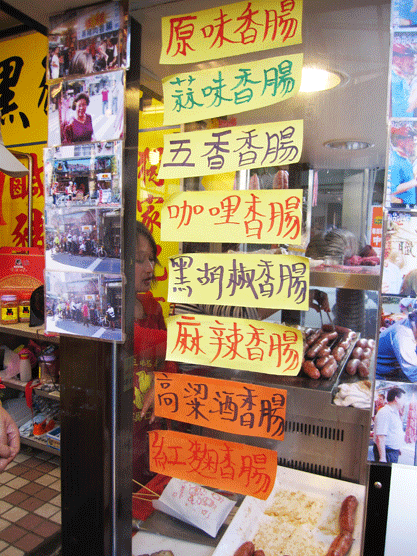 原味香腸
蒜味香腸
五香香腸
咖哩香腸
黑胡椒香腸
麻辣香腸
高粱酒香腸
紅麴香腸
黑